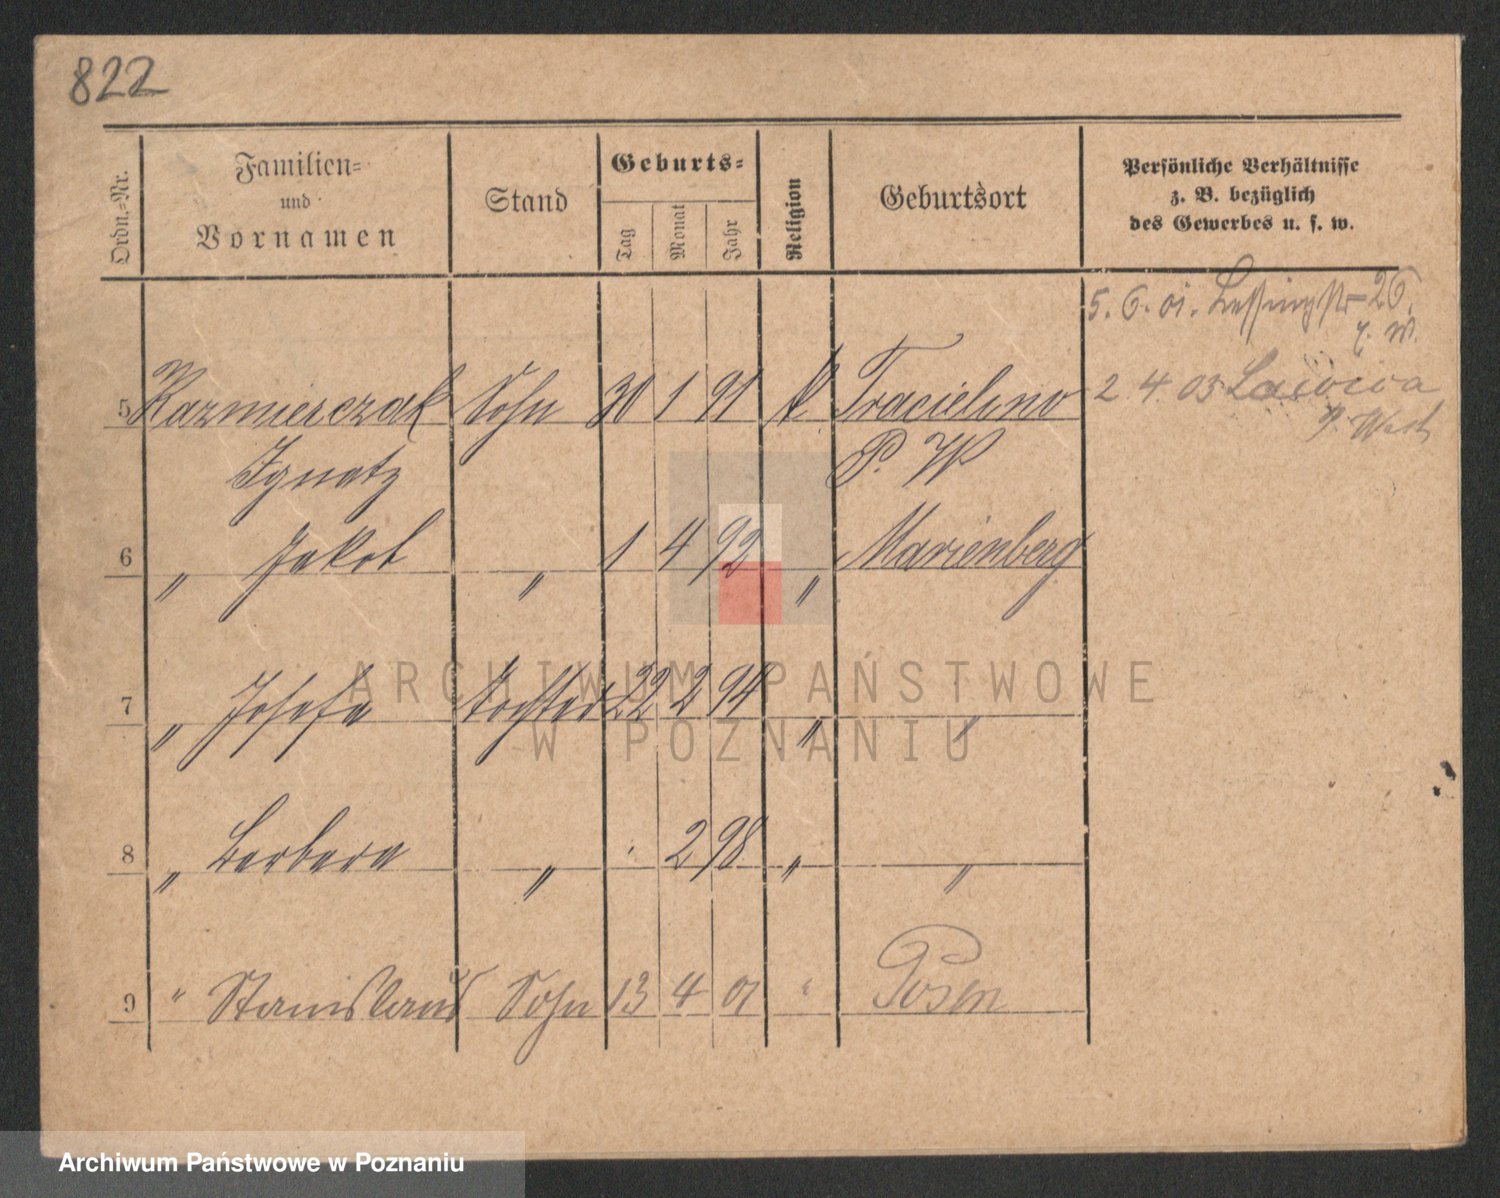 822
Ordn.-Nr.
Familien-
und
Vornamen
Stand
Geburts-
Tag
Monat
Jahr
Religion
Geburtsort
Persönliche Verhältnisse
z. B. bezüglich
des Gewerbes u. s. w.
5. 6. 01. Lessingstr 26.
5 Kazmierczak Sohn 30 1 91 k Tracielno 2 4 03
Ignatz P. W
6 " Jakob " 1 4 92 " Marienberg
7 " Josefa Tochter 22 2 94 " "
8 " Barbara " 2 98 " "
9 " Stanislaus Sohn 13 4 01 " Posen
ARCHIWUM PAŃSTWOWE
W POZNANIU
Archiwum Państwowe w Poznaniu